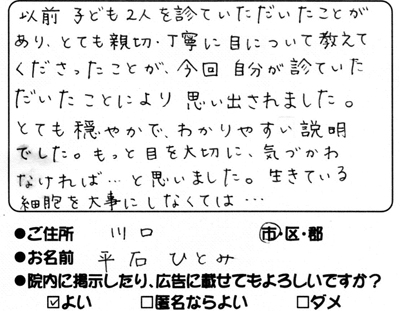 以前 子ども2人を診ていただいたことが
あり、とても親切・丁寧に目について教えて
くださったことが、今回 自分が診ていた
だいたことにより 思い出されました。
とても穏やかで、わかりやすい説明
でした。もっと目を大切に、気づかわ
なければ…と思いました。生きている
細胞を大事にしなくては…
●ご住所 川口 市・区・郡
●お名前 平石 ひとみ
●院内に掲示したり、広告に載せてもよろしいですか？
☑よい □匿名ならよい □ダメ